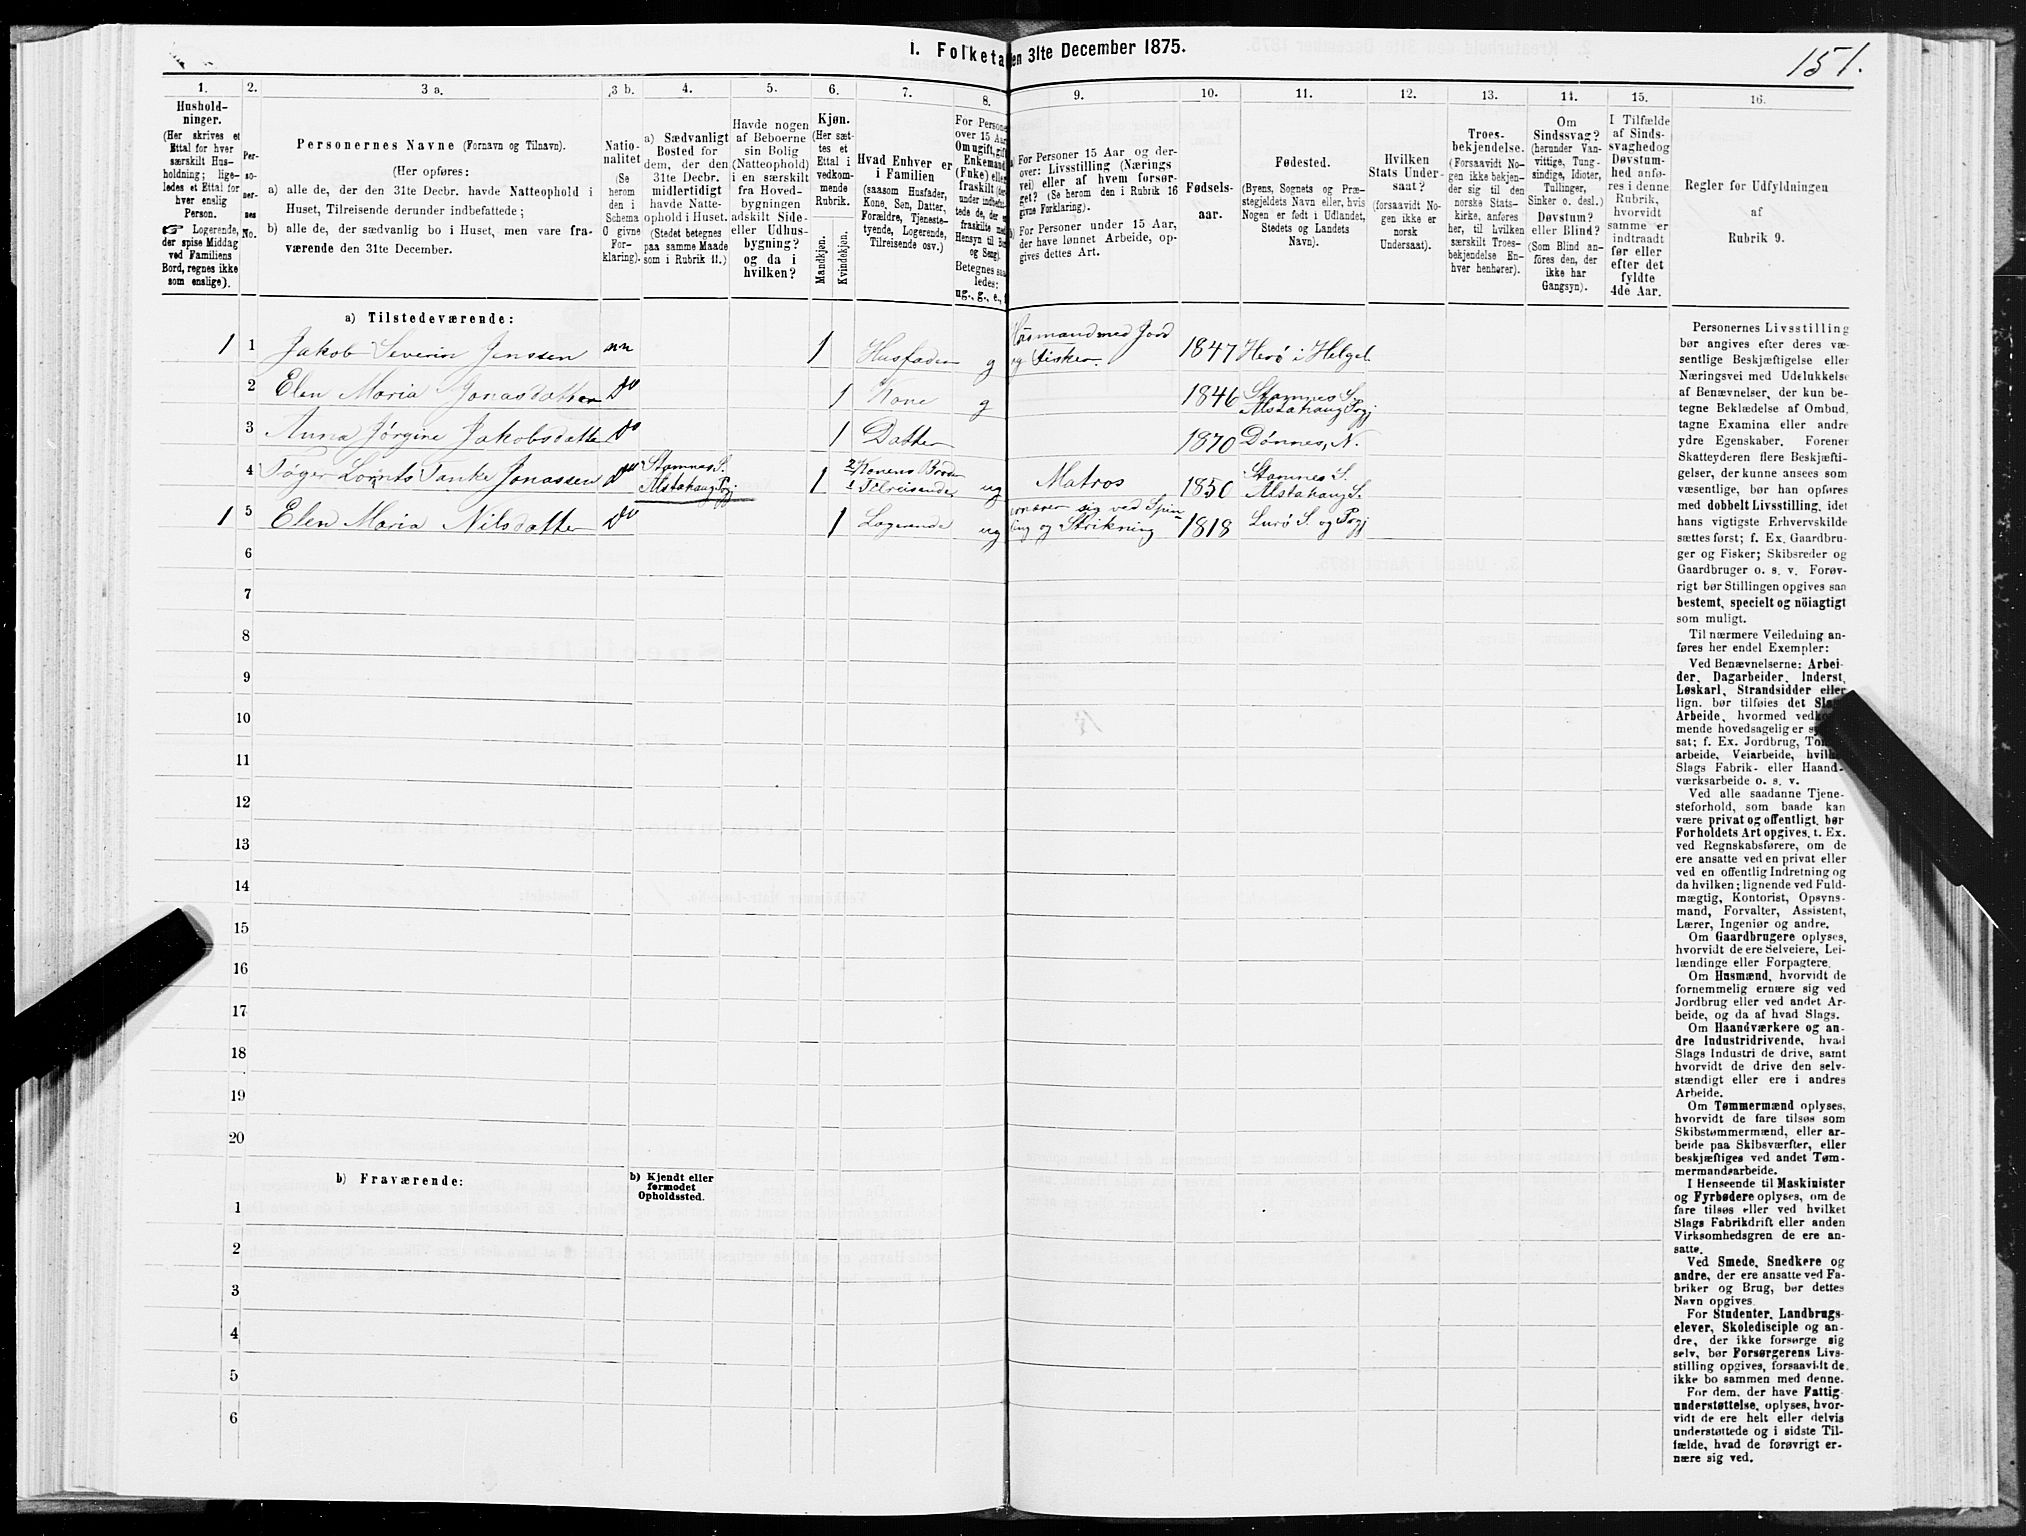 1. Folketa en 31te December 1875.
151.
1.
Hushold-
ninger.
(Her skrives et
Ettal for hver
særskilt Hus-
holdning; lige-
ledes et Ettal for
hver enslig
Person.
☞ Logerende,
der spise Middag
ved Familiens
Bord, regnes ikke
som enslige).
2.
Per-
so-
ner-
nes
No.
3 a.
Personernes Navne (Fornavn og Tilnavn).
(Her opføres:
a) alle de, der den 31te Decbr. havde Natteophold i
Huset, Tilreisende derunder indbefattede;
b) alle de, der sædvanlig bo i Huset, men vare fra-
værende den 31te December.
3 b.
Natio-
nalitet
(Se
herom
den i
Schema
O givne
For-
klaring).
4.
a) Sædvanligt
Bosted for
dem, der den
31te Decbr.
midlertidigt
havde Natte-
ophold i Huset.
(Stedet betegnes
paa samme Maade
som i Rubrik 11.)
5.
Havde nogen
af Beboerne
sin Bolig
(Natteophold)
i en særskilt
fra Hoved-
bygningen
adskilt Side-
eller Udhus-
bygning?
og da i
hvilken?
6.
Kjøn.
(Her sæt-
tes et
Ettal i
vedkom-
mende
Rubrik.
Mandkjøn.
Kvindekjøn.
7.
Hvad Enhver er
i Familien
(saasom Husfader,
Kone, Søn, Datter,
Forældre, Tjeneste-
tyende, Logerende,
Tilreisende osv.)
8.
For Persone
over 15 Aar
Om ugift, gift
Enkemand
(Fnke) eller
fraskilt
under indbefat-
tede de, der er
fraskilte med
Hensyn til Bo
og Seng).
Betegnes saa-
ledes:
ug., g., e.,
9.
a) For Personer 15 Aar og der-
over: Livsstilling (Nærings
vei) eller af hvem forsør-
get? (Se herom den i Rubrik 16
givne Forklaring).
b) For Personer under 15 Aar,
der have lønnet Arbeide, op-
gives dettes Art.
10.
Fødsels-
aar.
11.
Fødested.
(Byens, Sognets og Præ-
stegjeldets Navn eller, hvis
Nogen er født i Udlandet,
Stedets og Landets
Navn).
12.
Hvilken
Stats Under-
saat?
(forsaavidt No-
gen ikke er
norsk
Undersaat).
13.
Troes-
bekjendelse.
(Forsaavidt No-
gen ikke bekjen-
der sig til den
norske Stats-
kirke, anføres
her, til hvilken
særskilt Troes-
bekjendelse En-
hver henhører).
14.
Om
Sindssvag?
(herunder Van-
vittige, Tung-
sindige, Idioter,
Tullinger,
Sinker o. desl.)
Døvstum?
eller Blind?
(Som Blind an-
føres den, der
ikke har
Gangsyn).
15.
I Tilfælde
af Sinds-
svaghed og
Døvstum-
hed anfø-
res i denne
Rubrik,
hvorvidt
samme er
indtraadt
før eller
efter det
fyldte
4de Aar.
16.
Regler for Udfyldningen
af
Rubrik 9.
a) Tilstedeværende:
1 1 Jakob Severin Jenssen nn 1 Husfader g Husmand med Jord og Fisker. 1847 Herø i Helgel.
2 Elen Maria Jonasdatter Do 1 Kone g 1846 Stamnes S. Alstahaug Prgj
3 Anna Jørgine Jakobsdatter Do 1 Datter 1870 Dønnes, N.
4 Tøger Lornts Tanke Jonassen Do Stamnes S. Alstahaug Prgj 1 2 Konens Broder 1 Tilreisende ug Matros 1850 Stamnes S. Alstahaug S.
1 5 Elen Maria Nilsdatter Do 1 Logerende ug ernærer sig ved Spin- ing og Strikning 1818 Lurø S. og Prgj
6
7
8
9
10
11
12
13
14
15
16
17
18
19
20
b) Fraværende:
b) Kjendt eller
formodet
Opholdssted.
1
2
3
4
5
6
Personernes Livsstilling
bør angives efter deres væ-
sentlige Beskjæftigelse eller
Næringsvei med Udelukkelse
af Benævnelser, der kun be-
tegne Beklædelse af Ombud,
tagne Examina eller andre
ydre Egenskaber. Forener
Skatteyderen flere Beskjæfti-
gelser, der kunne ansees som
væsentlige, bør han opføres
med dobbelt Livsstilling, idet
hans vigtigste Erhvervskilde
sættes først; f. Ex. Gaardbru-
ger og Fisker; Skibsreder og
Gaardbruger o. s. v. Forøv-
rigt bør Stillingen opgives saa
bestemt, specielt og nöiagtigt
som muligt.
Til nærmere Veiledning an-
føres her endel Exempler:
Ved Benævnelserne: Arbei-
der, Dagarbeider, Inderst,
Løskarl, Strandsidder eller
lign. bør tilføies det Slags
Arbeide, hvormed vedkom-
mende hovedsagelig er
sat; f. Ex. Jordbrug,
arbeide, Veiarbeide, hvilket
Slags Fabrik- eller Haand-
værksarbeide o. s. v.
Ved alle saadanne Tjene-
steforhold, som baade kan
være privat og offentligt, bør
Forholdets Art opgives, t. Ex.
ved Regnskabsførere, om de
ere ansatte ved en privat eller
ved en offentlig Indretning og
da hvilken; lignende ved Fuld-
mægtig, Kontorist, Opsyns-
mand, Forvalter, Assistent,
Lærer, Ingeniør og andre.
Om Gaardbrugere oplyses,
hvorvidt de ere Selveiere, Lei-
lændinge eller Forpagtere.
Om Husmænd, hvorvidt de
fornemmelig ernære sig ved
Jordbrug eller ved andet Ar-
beide, og da af hvad Slags.
Om Haandværkere og an-
dre Industridrivende, hvad
Slags Industri de drive, samt
hvorvidt de drive den selv-
stændigt eller ere i andres
Arbeide.
Om Tømmermænd oplyses,
hvorvidt de fare tilsøs som
Skibstømmermænd, eller ar-
beide paa Skibsværfter, eller
beskjæftiges ved andet Tøm-
mermandsarbeide.
I Henseende til Maskinister
og Fyrbødere oplyses, om de
fare tilsøs eller ved hvilket
Slags Fabrikdrift eller anden
Virksomhedsgren de ere an-
satte.
Ved Smede, Snedkere og
andre, der ere ansatte ved Fa-
briker og Brug, bør dettes
Navn opgives.
For Studenter, Landbrugs-
elever, Skoledisciple og an-
dre, der ikke forsørge sig
selv, bør Forsørgerens Livs-
stilling opgives, forsaavidt de
ikke bo sammen med denne.
For dem, der have Fattig-
understøttelse, oplyses, hvor-
vidt de ere helt eller delvis
understøttede og i sidste Til-
fælde, hvad de forøvrigt er-
nære sig ved.